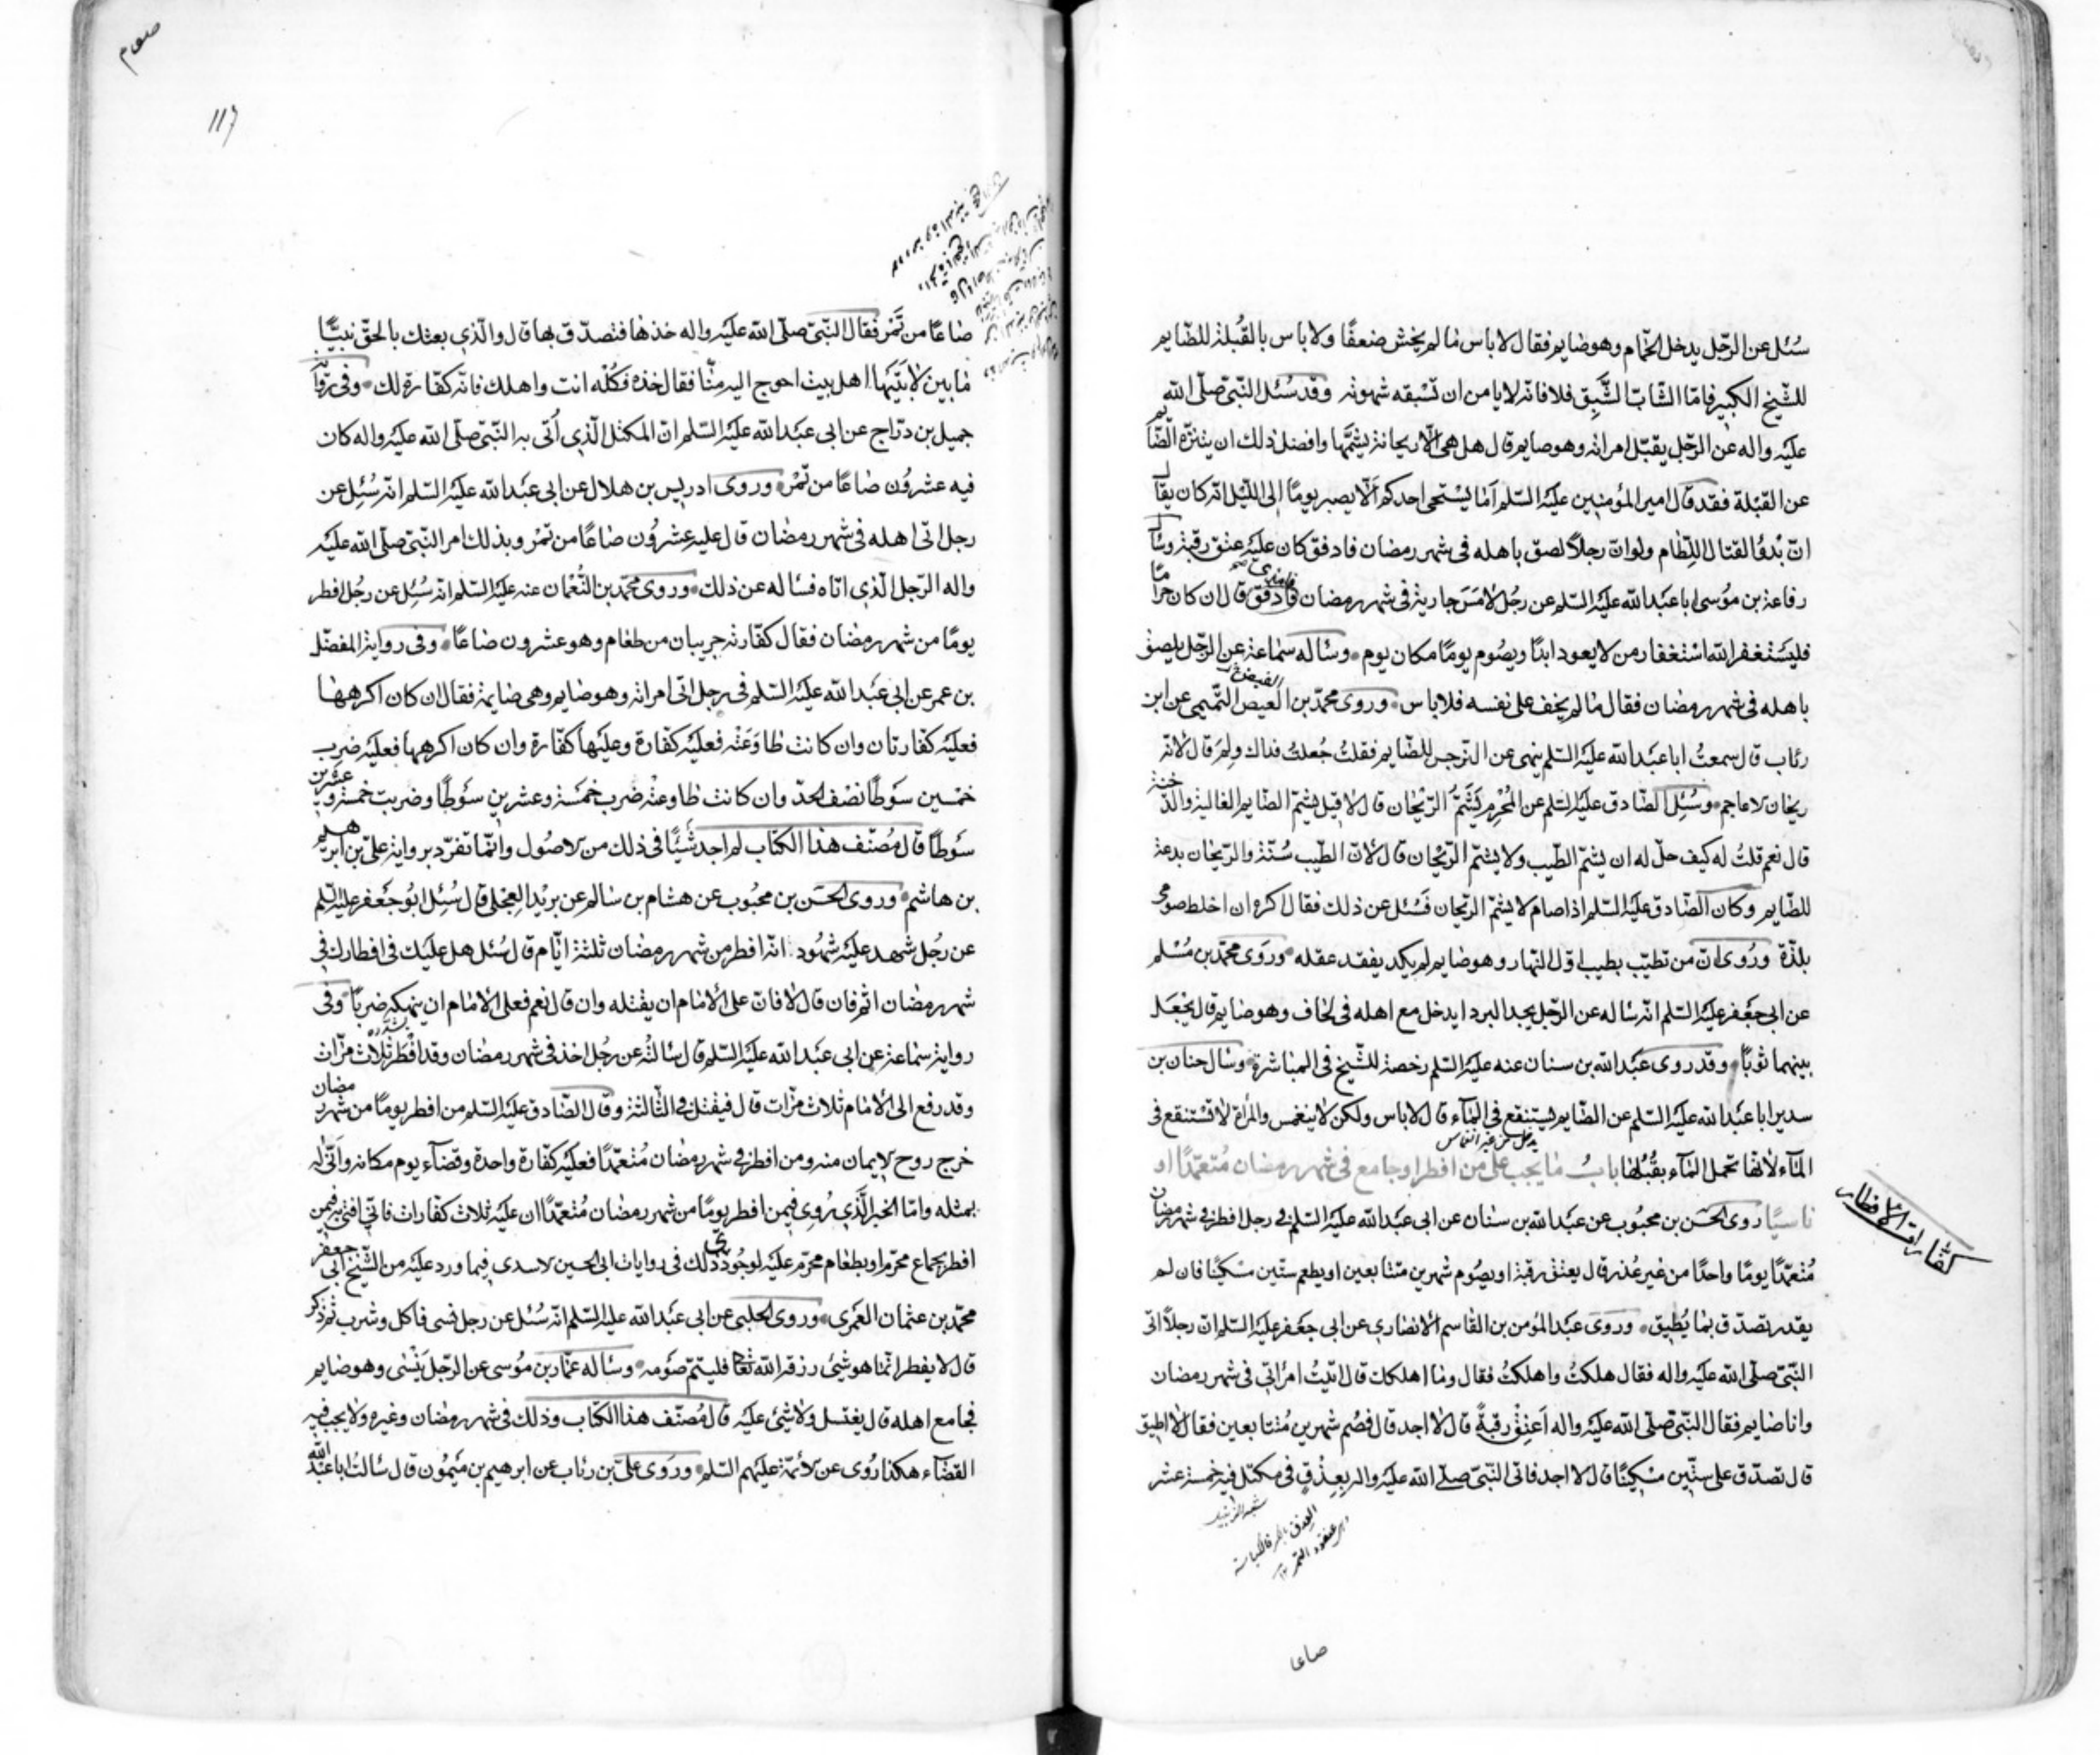 سُئل عن الرّجل يدخل الحمّام وهو صايم فقال لا باس ما لم يخش ضعفًا ولا باس بالقُبلة للصّايم
للشّيخ الكبير فامّا الشّابّ الشَّبِق فلا فانّه لا يامن ان تسْبقه شهوته وقد سُئل النّبيّ صلّى الله
عليْه واله عن الرّجل يقبّل امراته وهو صايم قال هل هي الّا ريحانة يشمّها وافضل ذلك ان يتنزّه الصّايم
عن القبْلة فقد قال امير المؤمنين عليْه السّلم اَما يسْتحي احدكم الّا يصبر يومًا الى اللّيْل انّه كان يقال
انّ بُدُوّ القتال اللّطام ولو انّ رجلًا لصق باهله في شهر رمضان فادفق كان عليْه عتق رقبة وسال
رفاعة بن موُسى ابا عبْد الله عليْه السّلم عن رجُل لامَسَ جارية في شهر رمضان فادفق قال ان كان حرامًا
فليسْتغفر الله اسْتغفار من لا يعود ابدًا ويصُوم يومًا مكان يوم وساله سماعة عن الرّجل يلصق
باهله في شهر رمضان فقال ما لم يخف على نفسه فلا باس وروى محمّد بن العيص التّميمي عن ابن
رئاب قال سمعتُ ابا عبْد الله عليْه السّلم ينهى عن النّرجس للصّايم فقلتُ جُعلتُ فداك ولِمَ قال لانّه
ريحان الاعاجم وسُئِل الصّادق عليْه السّلم عن المُحْرم يَشَمُّ الرّيْحان قال لا قيل يشمّ الصّايم الغالية والدّخنة
قال نعم قلتُ له كيف حلّ له ان يشمّ الطّيب ولا يشمّ الرّيْحان قال لانّ الطّيب سُنّة والرّيحان بدعة
للصّايم وكان الصّادق عليْه السّلم اذا صام لا يشمّ الرّيحان فسُئل عن ذلك فقال اكره ان اخلط صومي
بلذّة ورُوي انّ من تطيّب بطيب اوّل النّهار وهو صايم لم يكد يفقد عقله وروَى محمّد بن مُسْلم
عن ابي جعْفر عليْه السّلم انّه ساله عن الرّجل يجد البرد ايدخل مع اهله في لحاف وهو صايم قال يجْعَل
بينهما ثوْبًا وقد روى عبْد الله بن سنان عنه عليْه السّلم رخصة للشّيخ في المباشرة وسال حنان بن
سدير ابا عبْد الله عليْه السّلم عن الصّايم يستنقع في المآء قال لا باس ولكن لا ينغمس والمرأة لا تسْتنقع في
المآء لانّها تحمل المآء بقُبُلها بابُ ما يجب على من افطر او جامع في شهر رمضان مُتعمّدًا او
ناسيًا روى الحَسَن بن محبُوب عن عبْد الله بن سنان عن ابي عبْد الله عليْه السّلم في رجل افطر في شهر رمضان
مُتعمّدًا يومًا واحدًا من غير عُذر قال يعتق رقبة او يصُوم شهرين متتابعين او يطعم ستّين مسْكينًا فان لم
يقدر تصدّق بما يُطيق وروَى عبْد المؤمن بن القاسم الانصاري عن ابي جعْفر عليْه السّلم انّ رجلًا اتى
النّبيّ صلّى الله عليْه واله فقال هلكتُ واهلكتُ فقال وما اهلكك قال اتيتُ امرأتي في شهر رمضان
وانا صايم فقال النّبيّ صلّى الله عليْه واله اَعتِقْ رقبةً قال لا اجد قال فصُم شهرين مُتتابعين فقال لا اطيق
قال تصدّق على ستّين مسْكينًا قال لا اجد فاتي النّبيّ صلّى الله عليْه واله بِعِذْقٍ في مكتل فيه خمسة عشر
صاعا
كفّارة الافطار
صوم
117
صاعًا من تَمْر فقال النّبيّ صلّى الله عليْه واله خذها فتصدّق بها قال والّذي بعثك بالحقّ نبيًّا
ما بين لابَتَيْها اهل بيت احوج اليه منّا فقال خذه فكُلْه انت واهلك فانّه كفّارة لك وفي رواية
جميل بن درّاج عن ابي عبْد الله عليْه السّلم انّ المكتل الّذي اُتي به النّبيّ صلّى الله عليْه واله كان
فيه عشروُن صاعًا من تمْر وروى ادريس بن هلال عن ابي عبْد الله عليْه السّلم انّه سُئِل عن
رجل اتى اهله في شهر رمضان قال عليه عشروُن صاعًا من تمْر وبذلك امر النّبيّ صلّى الله عليْه
واله الرّجل الّذي اتاه فساله عن ذلك وروى محمّد بن النُّعْمان عنه عليْه السّلم انّه سُئِل عن رجُل افطر
يومًا من شهر رمضان فقال كفّارته جريبان من طعام وهو عشرون صاعًا وفي رواية المفضّل
بن عمر عن ابي عبْد الله عليْه السّلم في رجل اتى امراته وهو صايم وهي صايمة فقال ان كان اكرهها
فعليْه كفّارتان وان كانت طاوَعَتْه فعليْه كفّارة وعليْها كفّارة وان كان اكرهها فعليْه ضرب
خمْسين سوْطًا نصْف الحدّ وان كانت طاوعتْه ضرب خمْسة وعشرين سوْطًا وضربت خمسة وعشرين
سوْطًا قال مُصنّف هذا الكتاب لم اجد شَيْئًا في ذلك من الاصُول وانّما تفرّد برواية عليّ بن ابرهيم
بن هاشم وروى الحَسَن بن محبُوب عن هشام بن سالم عن بريْد العِجْلي قال سُئِل ابُو جعْفر عليْه السّلم
عن رجُل شهد عليْه شهُود انّه افطر من شهر رمضان ثلثة ايّام قال سُئل هل عليْك في افطارك في
شهر رمضان اثم فان قال لا فانّ على الامام ان يقتله وان قال نعم فعلى الامام ان ينهكه ضربًا وفي
رواية سماعة عن ابي عبْد الله عليْه السّلم قال سالتُه عن رجُل اخذ في شهر رمضان وقد افْطَر ثلاث مرّات
وقد رفع الى الامام ثلاث مرّات قال فيقتل في الثّالثة وقال الصّادق عليْه السّلم من افطر يومًا من شهر رمضان
خرج روح الايمان منه ومن افطر في شهر رمضان مُتعمّدًا فعليْه كفّارة واحدة وقضآء يوم مكانه وانّى له
بمثله وامّا الخبر الّذي رُوِي فيمن افطر يومًا من شهر رمضان مُتعمّدًا ان عليْه ثلاث كفّارات فانّي افتي به فيمن
افطر بجماع محرّم او بطعام محرّم عليْه لوجُود ذلك في روايات ابي الحسين الاسدي فيما ورد عليْه من الشّيخ ابي جعفر
محمّد بن عثمان العَمري وروى الحلبي عن ابي عبْد الله عليْه السّلم انّه سُئل عن رجل نسي فاكل وشرب ثم ذكر
قال لا يفطر انّما هو شئ رزقه الله تعالى فليتمّ صوْمه وساله عمّار بن موُسى عن الرّجل يَنْسَى وهو صايم
فجامع اهله قال يغتسل ولا شئ عليْه قال مُصنّف هذا الكتاب وذلك في شهر رمضان وغيره ولا يجب فيه
القضآء هكذا رُوي عن الائمّة عليْهم السّلم وروَى عليّ بن رئاب عن ابرهيم بن ميْمُون قال سالتُ ابا عبْد الله